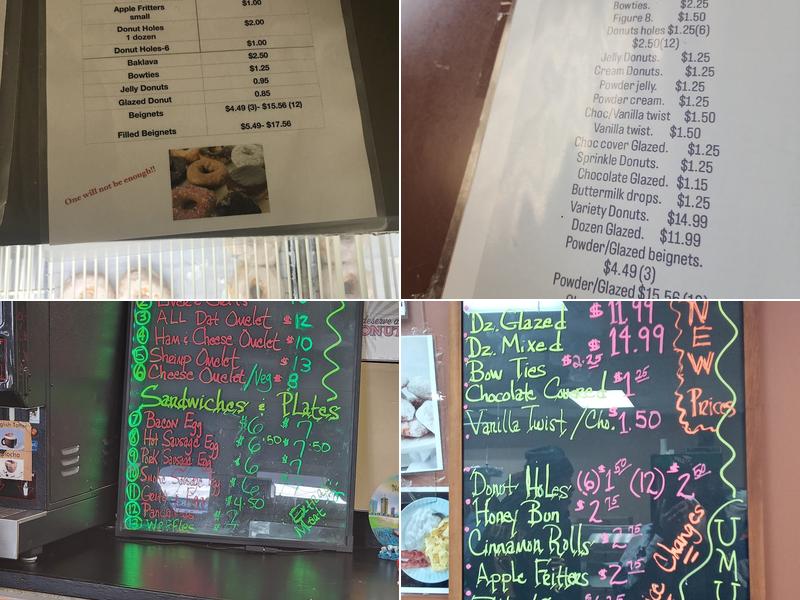 Apple Fritters
small $1.00
Donut Holes
1 dozen $2.00
Donut Holes-6 $1.00
Baklava $2.50
Bowties $1.25
Jelly Donuts 0.95
Glazed Donut 0.85
Beignets $4.49 (3)- $15.56 (12)
Filled Beignets $5.49- $17.56
One will not be enough!!
Bowties. $2.25
Figure 8. $1.50
Donuts holes $1.25(6)
$2.50(12)
Jelly Donuts. $1.25
Cream Donuts. $1.25
Powder jelly. $1.25
Powder cream. $1.25
Choc/Vanilla twist $1.50
Vanilla twist. $1.50
Choc cover Glazed. $1.25
Sprinkle Donuts. $1.25
Chocolate Glazed. $1.15
Buttermilk drops. $1.25
Variety Donuts. $14.99
Dozen Glazed. $11.99
Powder/Glazed beignets.
$4.49(3)
Powder/Glazed $15.56
3 ALL Dat Omelet $12
4 Ham & Cheese Omelet $10
5 Shrimp Omelet $13
6 Cheese Omelet/Veg $8
Sandwiches & Plates
7 Bacon Egg $6 $7
8 Hot Sausage Egg $6.50 $7.50
9 Pork Sausage Egg $6 $7
10 Sausage Egg $6
11 $4.50
12
13 Waffles
Extra
Meat
deserve a
Dz. Glazed $11.99
Dz. Mixed $14.99
Bow Ties $2.25
Chocolate Covered $1.25
Vanilla Twist/Cho. $1.50
NEW
Prices
Donut Holes (6) $1.50 (12) $2.50
Honey Bun $2.75
Cinnamon Rolls $2.75
Apple Fritters $2.75
Changes
UMU